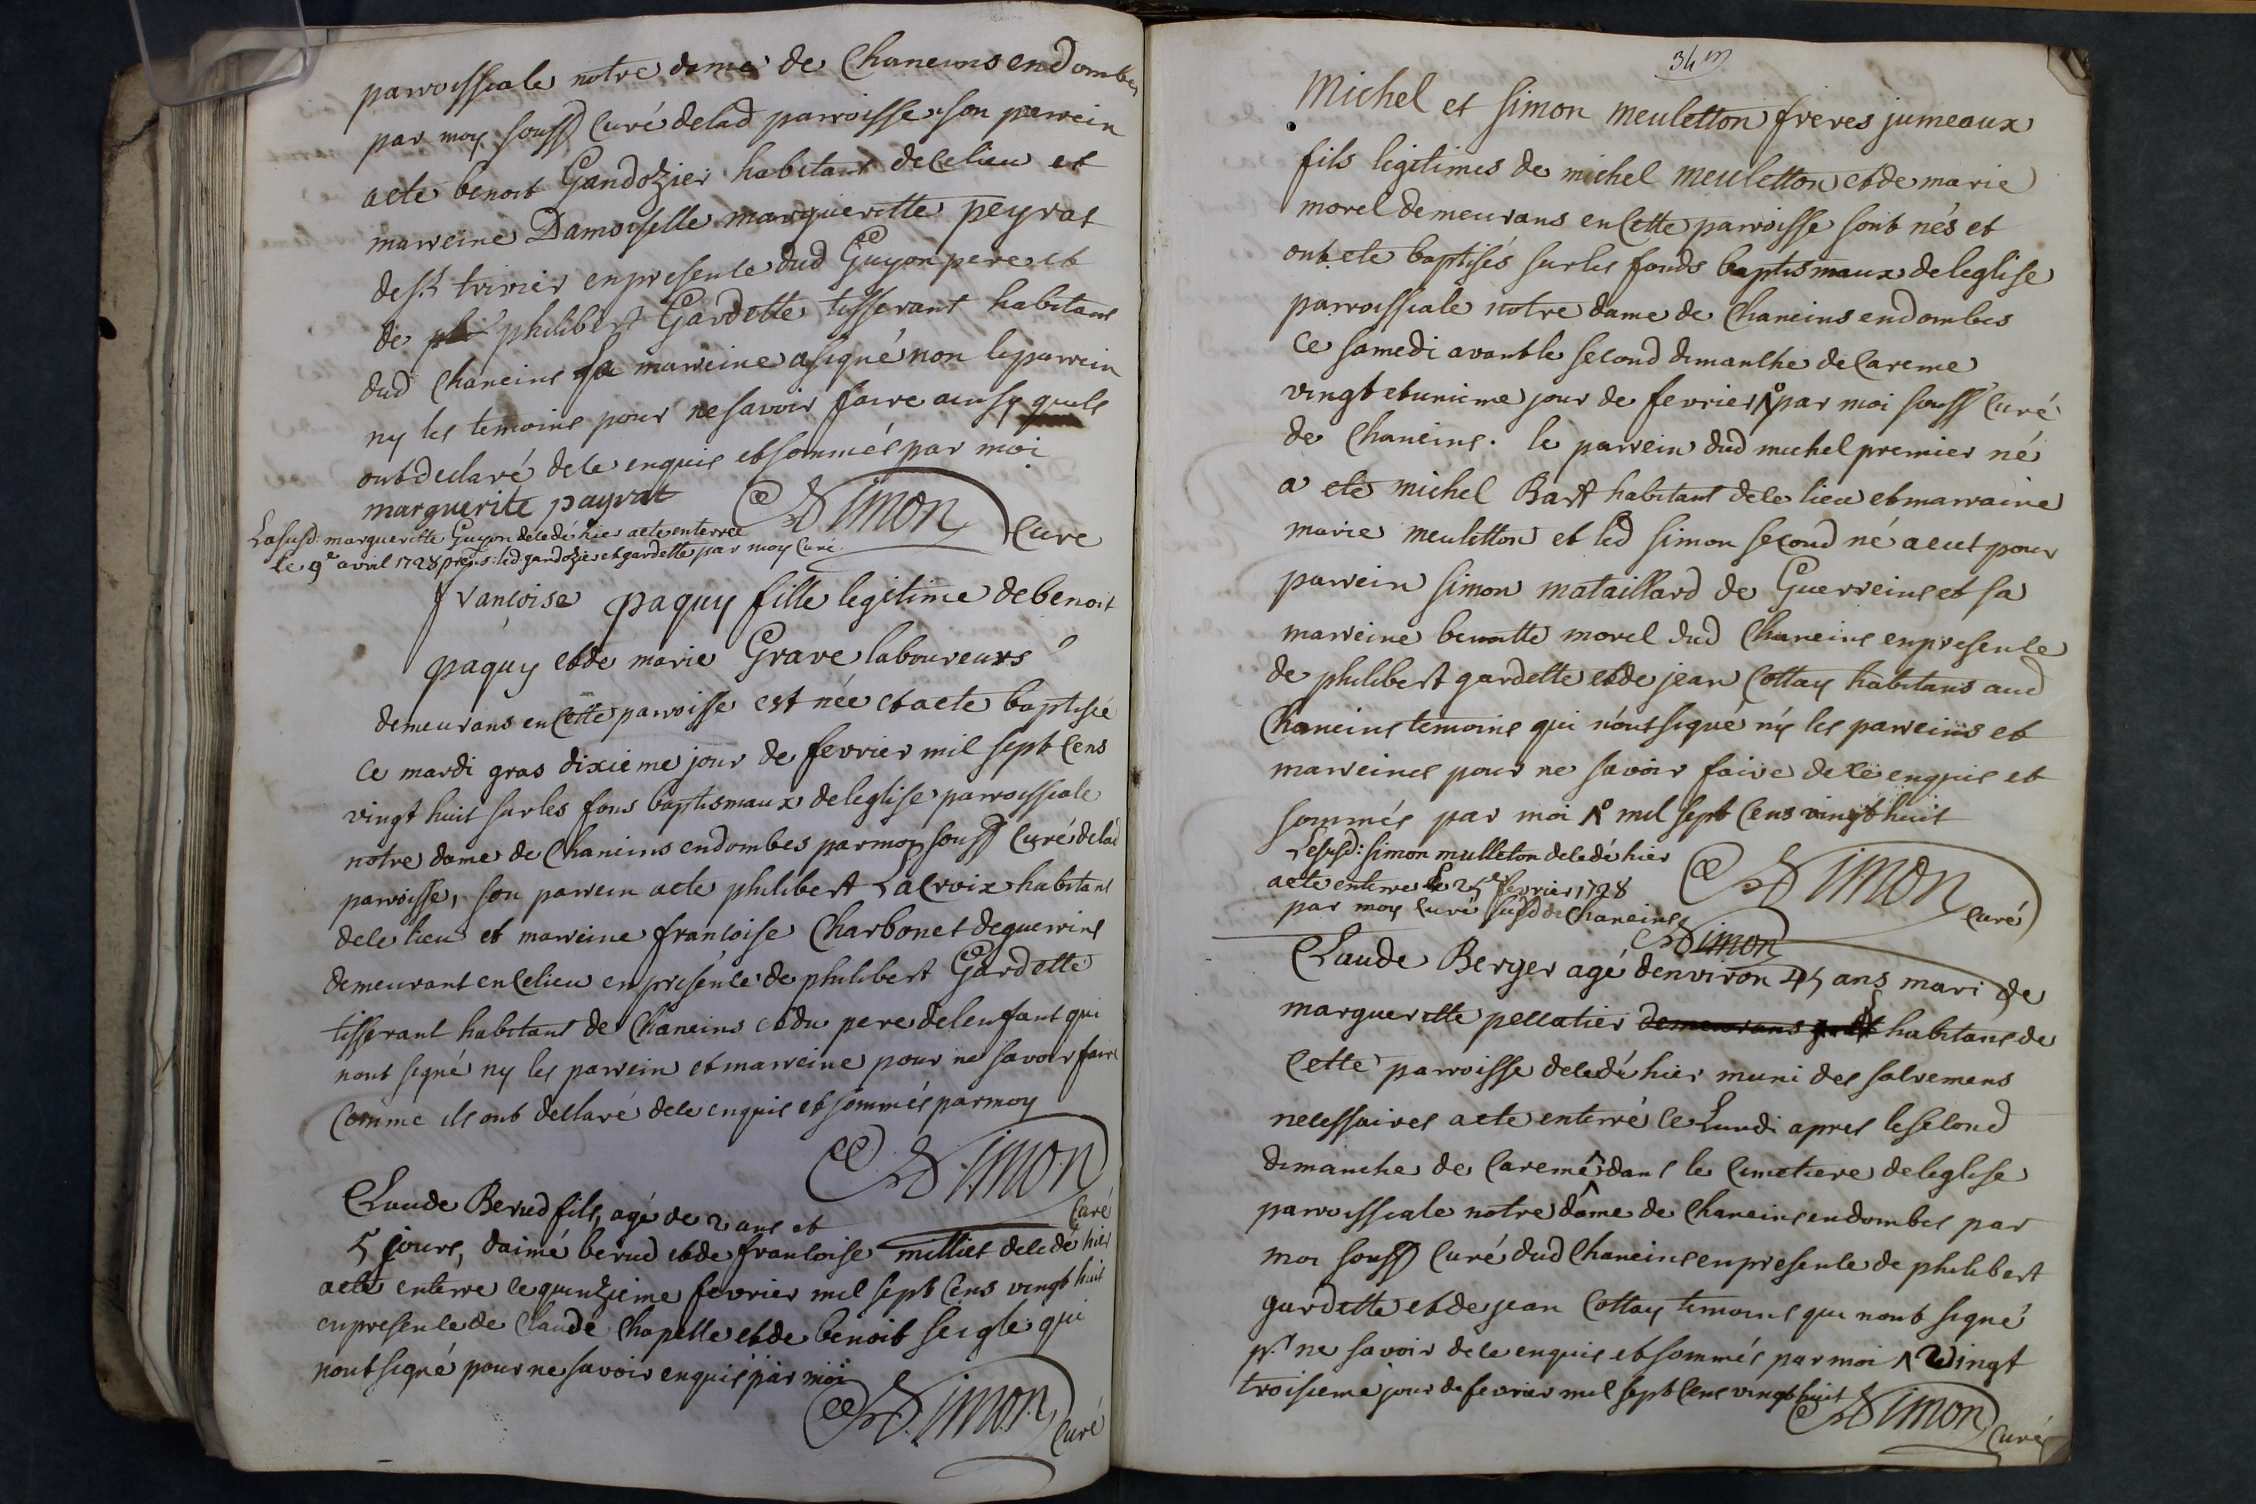 parroissiale notre dame de Chaneins en Dombes
par moy souss Curé delad parroisse son parrein
a ete benoit Gandozier habitant de ce lieu et
marreine Damoiselle margueritte peyrat
de st trivier en presence dud Guyon pere et
de philibert Gardette tisserant habitans
dud Chaneins la marreine a signé non le parrein
ny les temoins pour ne savoir faire ainsy quils
ont declaré de ce enquis et sommés par moi
marguerite payrat Simon Curé
La susd: margueritte Guyon decedé hier a ete enterrée
le 9e avril 1728 presens: led gandozier et gardette par moy Curé
françoise paquy fille legitime de benoit
paquy et de marie Grave laboureurs
demeurans en Cette parroisse est née et a ete baptisée
ce mardi gras dixieme jour de fevrier mil sept Cens
vingt huit sur les fons baptismaux de leglise parroissiale
notre dame de Chaneins en dombes par moy souss Curé delad
parroisse, son parrein a ete philibert Lacroix habitant
de ce lieu et marreine francoise Charbonet de guerrins
demeurant en Ce lieu en présence de philibert Gardette
tisserant habitant de Chaneins et du pere de lenfant qui
nont signé ny les parrein et marreine pour ne savoir faire
Comme ils ont declaré de ce enquis et sommés par moy
Simon
Curé
Claude Berud fils, agé de 2 ans et
5 jours, daimé berud et de francoise milliet decedé hier
a eté enterré le quinzieme fevrier mil sept Cens vingt huit
en presence de Claude Chapelle et de benoit seigle qui
nont signé pour ne savoir enquis par moi
Simon Curé
34 m
Michel et Simon meuletton freres jumeaux
fils legitimes de michel meuletton et de marie
morel demeurans en Cette parroisse sont nés et
ont ete baptisés sur les fonds baptismaux de leglise
parroissiale notre dame de Chaneins en dombes
Ce samedi avant le second dimanche de Careme
vingt et unieme jour de fevrier ^ par moi souss Curé
de Chaneins. le parrein dud michel premier né
a ete michel Bast habitant de ce lieu et marraine
marie meuletton et led simon second né a eut pour
parrein simon mataillard de Guerreins et sa
marreine benoitte morel dud Chaneins en presence
de philibert gardette et de jean Cottay habitans aud
Chaneins temoins qui nont signé ny les parreins et
marreines pour ne savoir faire de ce enquis et
sommés par moi ^ mil sept Cens vingt huit
Lesusd: simon mulleton decedé hier
a ete enterre le 25e fevrier 1728
par moy Curé susd de Chaneins Simon Curé
Simon
Claude Berger agé denviron 45 ans mari de
margueritte pellatier demeurans habitans de
Cette parroisse decedé hier muni des sacremens
necessaires a ete enterré le Lundi apres le second
dimanche de Careme ^ dans le Cimetiere de leglise
parroissiale notre dame de Chaneins en dombes par
moi souss Curé dud Chaneins en presence de philibert
gardette et de jean Cottay temoins qui nont signé
pr ne savoir de ce enquis et sommés par moi ^ vingt
troisieme jour de fevrier mil sept Cens vingt huit
Simon Curé